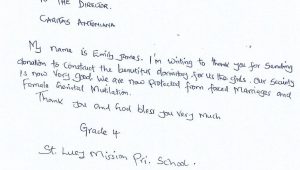 TO THE DIRECTOR.
CARITAS
My name is Emily James. I'm writing to thank you for sending
donation to construct the beautiful dormitory for us the girls. Our Security
is now very good. We are now protected from faced Marriages and
Female Genital Mutilation.
Thank you and God bless you very much
Grade 4
St. Lucy Mission Pri. School.